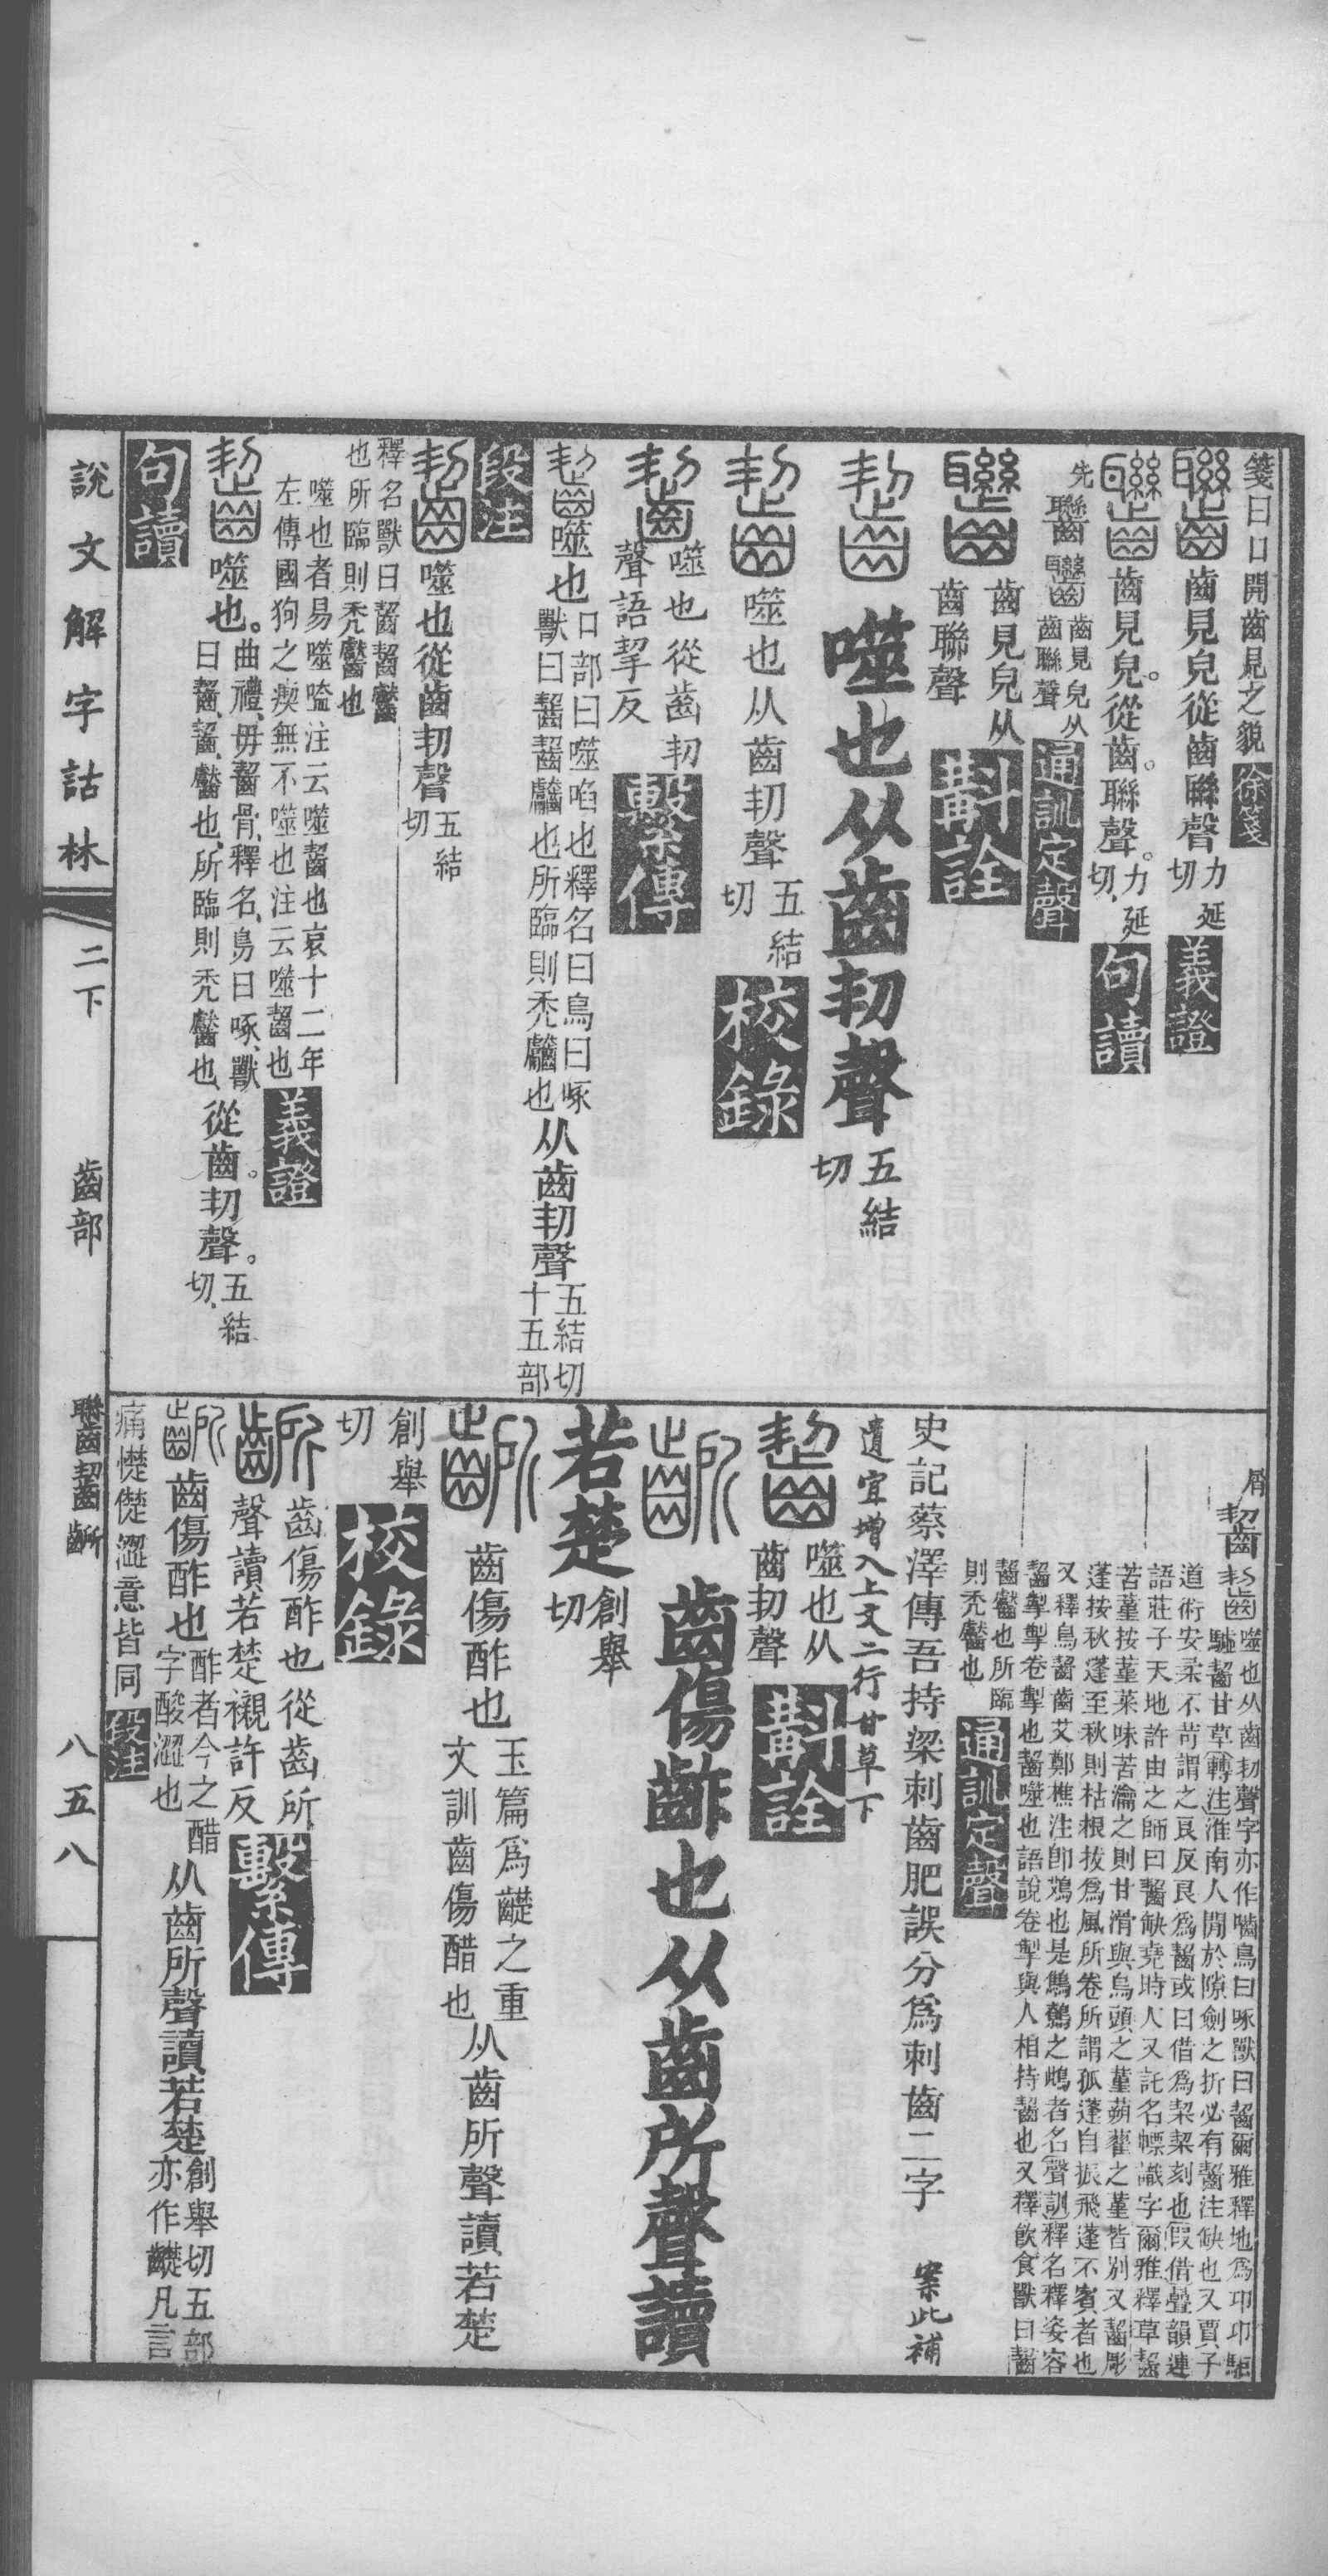 箋曰口開齒見之貌 徐箋
齒見皃從齒聯聲 力延切 義證
齒見皃。從齒。聯聲。力延切、句讀
先
齒見皃从齒聯聲 通訓定聲
齒見皃从齒聯聲 斠詮
噬也从齒㓞聲 五結切
噬也从齒㓞聲 五結切 校錄
噬也從齒㓞聲語挈反 繫傳
噬也 口部曰噬啗也釋名曰鳥曰啄
獸曰齧齧齾也所臨則禿齾也
从齒㓞聲 五結切十五部
段注
噬也從齒㓞聲 五結切
釋名獸曰齧齧齾也所臨則禿齾也
噬也者易噬嗑注云噬齧也哀十二年
左傳國狗之瘈無不噬也注云噬齧也 義證
噬也。曲禮、毋齧骨、釋名、鳥曰啄、獸
曰齧、齧、齾也、所臨則禿齾也、從齒。㓞聲。五結切、
句讀
說文解字詁林 二下 齒部 齾 齧 齭 八五八
屑
噬也从齒㓞聲字亦作嚙鳥曰啄獸曰齧爾雅釋地爲邛邛駏
驉齧甘草(轉注)淮南人閒於隙劍之折必有齧注缺也又賈子
道術安柔不苛謂之良反良爲齧或曰借爲栔栔刻也(假借)疊韻連
語莊子天地許由之師曰齧缺堯時人又託名幖識字爾雅釋草齧
苦堇按堇菜味苦瀹之則甘滑與烏頭之堇蒴藋之堇皆別又齧彫
蓬按秋蓬至秋則枯根拔爲風所卷所謂孤蓬自振飛蓬不賓者也
又釋鳥齧齒艾鄭樵注卽鴱也是鷦鷯之鴱者名(聲訓)釋名釋姿容
齧掣掣卷掣也齧噬也語說卷掣與人相持齧也又釋飮食獸曰齧
齧齾也所臨則禿齾也 通訓定聲
史記蔡澤傳吾持梁刺齒肥誤分爲刺齒二字 案此補
遺宜增入上文二行甘草下
噬也从齒㓞聲 斠詮
齒傷酢也从齒所聲讀
若楚 創舉切
齒傷酢也 玉篇爲齼之重文訓齒傷醋也 从齒所聲讀若楚
創舉切 校錄
齒傷酢也從齒所聲讀若楚襯許反 繫傳
齒傷酢也 酢者今之醋字酸澀也 从齒所聲讀若楚 創舉切五部亦作齼凡言
痛憷儊澀意皆同 段注